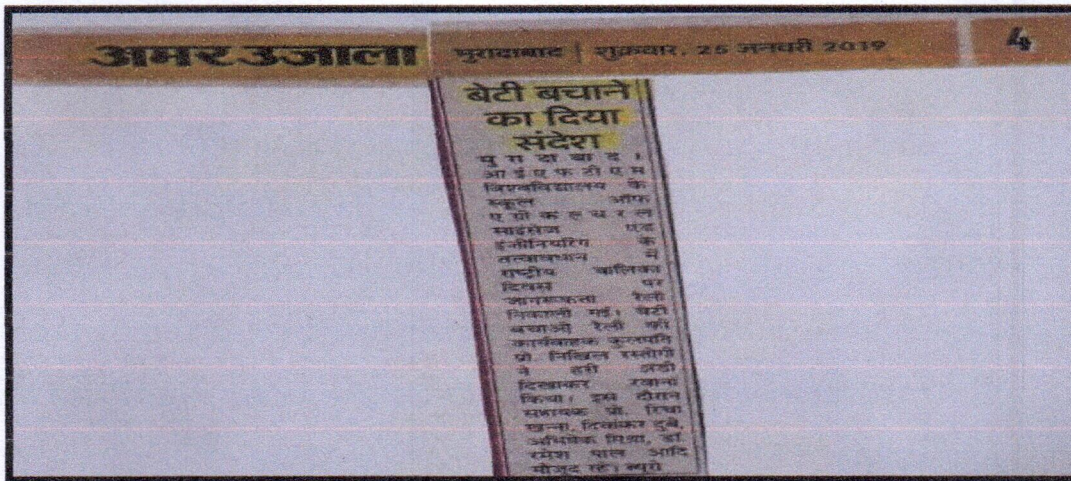 अमर उजाला
मुरादाबाद | शुक्रवार, 25 जनवरी 2019
4
बेटी बचाने
का दिया
संदेश
मुरादाबाद।
आईएफटीएम
विश्वविद्यालय के
स्कूल ऑफ
एग्रीकल्चरल
साइंसेज एंड
इंजीनियरिंग के
तत्वावधान में
राष्ट्रीय बालिका
दिवस पर
जागरूकता रैली
निकाली गई। बेटी
बचाओ रैली को
कार्यवाहक कुलपति
प्रो निखिल रस्तोगी
ने हरी झंडी
दिखाकर रवाना
किया। इस दौरान
सहायक प्रो. रिचा
खन्ना, दिवाकर दुबे,
अभिषेक मिश्रा, डॉ.
रमेश पाल आदि
मौजूद रहे। ब्यूरो